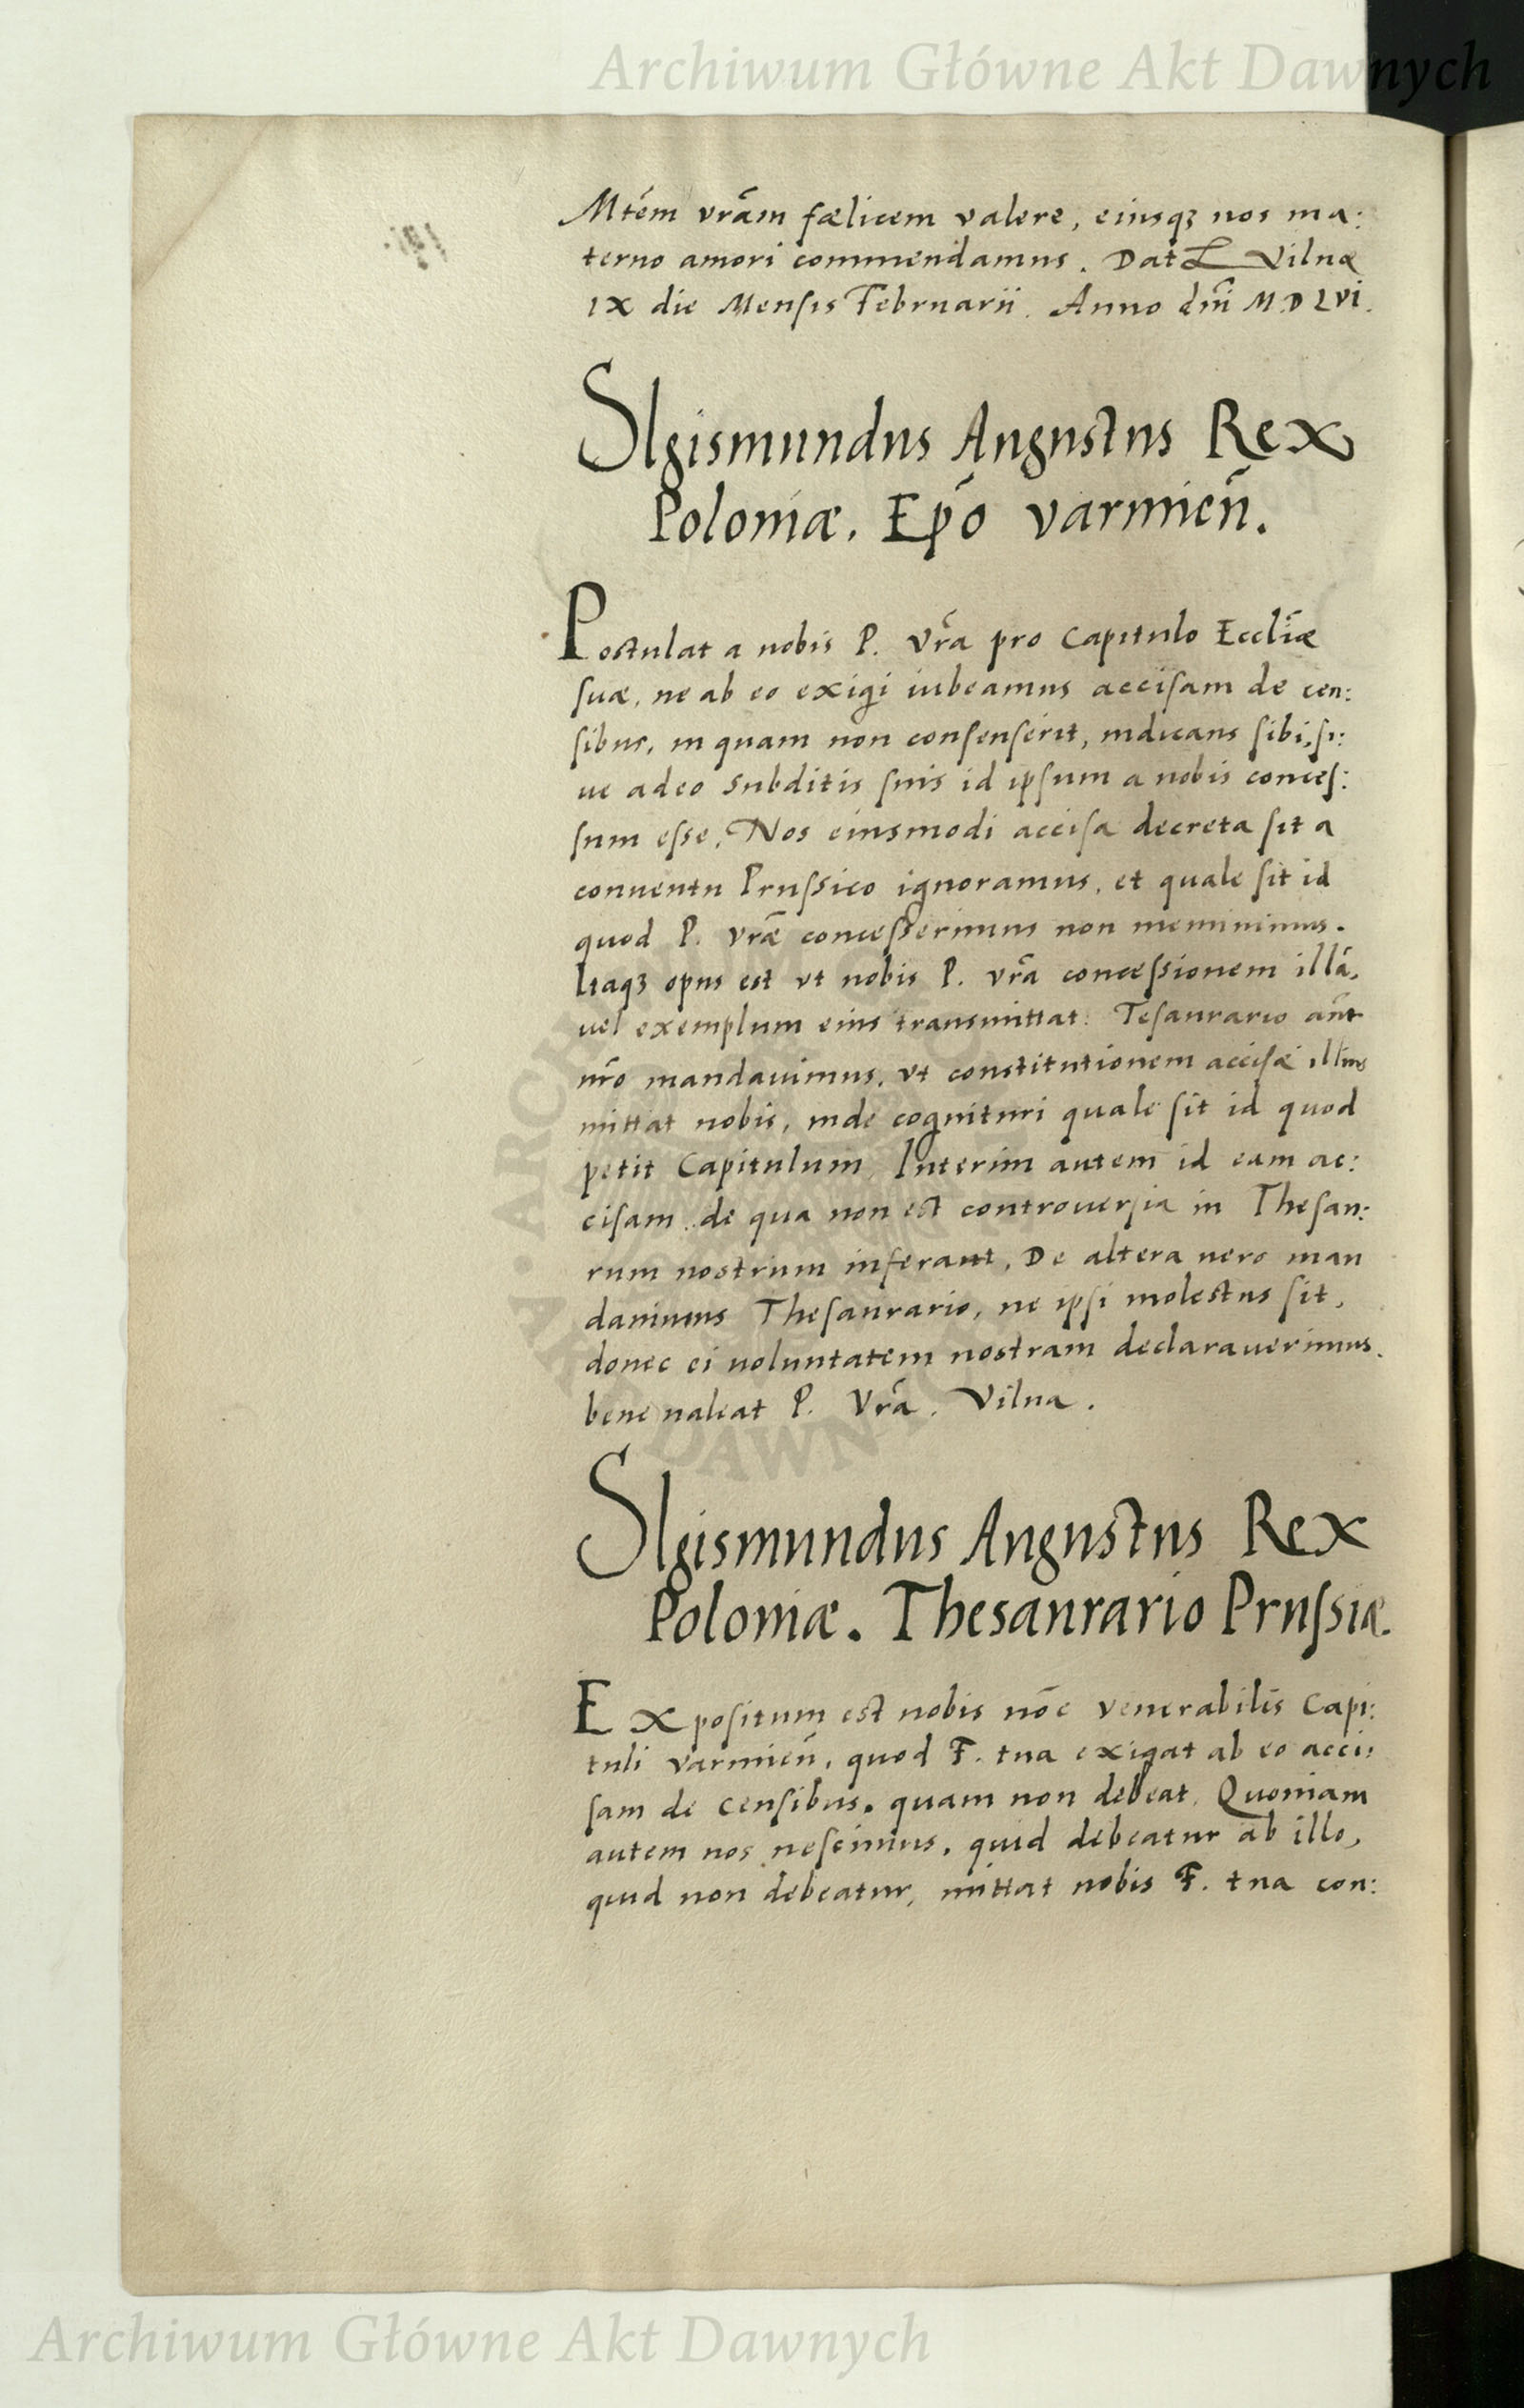 Archiwum Główne Akt Dawnych
Mtem vrãm fælicem valere, eiusqꝫ nos ma:
terno amori commendamus. Dat Vilnæ
IX die Mensis Februarii. Anno dñi M.D LVI.
SIgismundus Augustus Rex
Poloniæ. Epõ varmieñ.
Postulat a nobis P. Vrã pro Capitulo Eccliæ
suæ, ne ab eo exigi iubeamus accisam de cen:
sibus, in quam non consenserit, indicans sibi, si:
ue adeo subditis suis id ipsum a nobis conces:
sum esse. Nos eiusmodi accisa decreta sit a
conuentu Prussico ignoramus, et quale sit id
quod P. vræ concesserimus non meminimus.
Itaqꝫ opus est vt nobis P. vrã concessionem illã,
uel exemplum eius transmittat. Tesaurario aũt
nrõ mandauimus, vt constitutionem accisæ illius
mittat nobis, inde cognituri quale sit id quod
petit Capitulum. Interim autem id eam ac:
cisam de qua non est controuersia in Thesau:
rum nostrum inferant, De altera uero man
dauimus Thesaurario, ne ipsi molestus sit,
donec ei uoluntatem nostram declarauerimus.
bene ualeat P. Vrã. Vilna.
SIgismundus Augustus Rex
Poloniæ. Thesaurario Prussiæ.
Expositum est nobis nõe venerabilis Capi:
tuli varmieñ, quod F. tua exigat ab eo acci:
sam de censibus. quam non debeat. Quoniam
autem nos nescimus, quid debeatur ab illo,
quid non debeatur, mittat nobis F. tua con:
Archiwum Główne Akt Dawnych